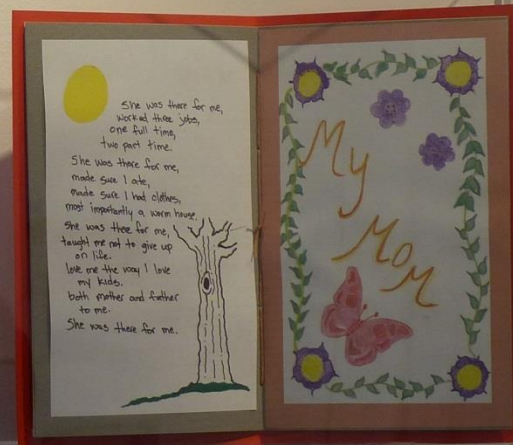 She was there for me,
worked three jobs,
one full time,
two part time.
She was there for me,
made sure I ate,
made sure I had clothes,
most importantly a warm house.
She was there for me,
taught me not to give up
on life.
love me the way I love
my kids.
both mother and father
to me.
She was there for me.
My
Mom